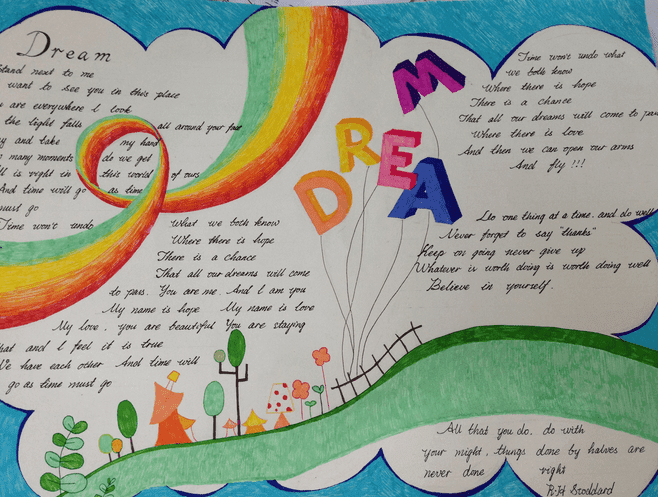 Dream
Stand next to me
want to see you in this place
are everywhere I look
the light falls all around your feet
and take my hand
many moments do we get
is right in this world of ours
And time will go as time
must go
Time won't undo What we both know
Where there is hope
There is a chance
That all our dreams will come
to pass. You are me. And I am you
My name is hope My name is love
My love, you are beautiful You are staying
that and I feel it is true
We have each other And time will
go as time must go
DREAM
Time won't undo what
we both know
Where there is hope
There is a chance
That all our dreams will come to pass
Where there is love
And then we can open our arms
And fly !!!
Do one thing at a time, and do well
Never forget to say "thanks"
Keep on going never give up
Whatever is worth doing is worth doing well
Believe in yourself.
All that you do, do with
your might, things done by halves are
never done right
R.H Stoddard